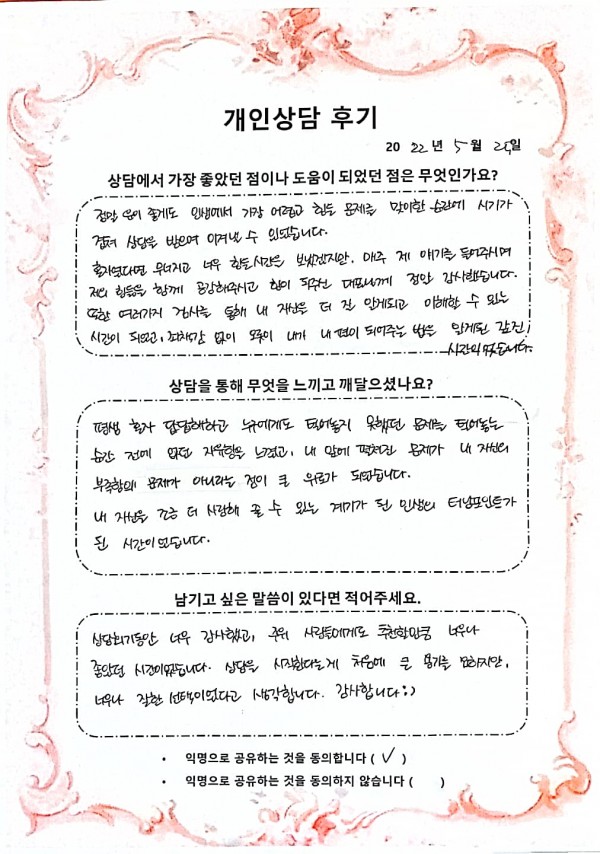 개인상담 후기
20 22 년 5 월 25일
상담에서 가장 좋았던 점이나 도움이 되었던 점은 무엇인가요?
정말 운이 좋게도 인생에서 가장 어렵고 힘든 문제를 맞이한 순간에 시기가
겹쳐 상담을 받으며 이겨낼 수 있었습니다.
혼자였다면 무너지고 너무 힘든시간을 보냈겠지만, 매주 제 얘기를 들어주시며
저의 힘듦을 함께 공감해주시고 힘이 되주신 대표님께 정말 감사했습니다.
또한 여러가지 검사를 통해 내 자신을 더 잘 알게되고 이해할 수 있는
시간이 되었고, 죄책감 없이 오롯이 내가 내 편이 되어주는 법을 알게된 값진
시간이었습니다.
상담을 통해 무엇을 느끼고 깨달으셨나요?
평생 혼자 답답해하고 누구에게도 털어놓지 못했던 문제를 털어놓는
순간 전에 없던 자유함을 느꼈고, 내 앞에 펼쳐진 문제가 내 자신의
부족함의 문제가 아니라는 점이 큰 위로가 되었습니다.
내 자신을 조금 더 사랑해 줄 수 있는 계기가 된 인생의 터닝포인트가
된 시간이었습니다.
남기고 싶은 말씀이 있다면 적어주세요.
상담회기동안 너무 감사했고, 주위 사람들에게도 추천할만큼 너무나
좋았던 시간이었습니다. 상담을 시작한다는게 처음에 큰 용기를 요하지만,
너무나 잘한 선택이었다고 생각합니다. 감사합니다:)
• 익명으로 공유하는 것을 동의합니다 ( ✓ )
• 익명으로 공유하는 것을 동의하지 않습니다 ( )